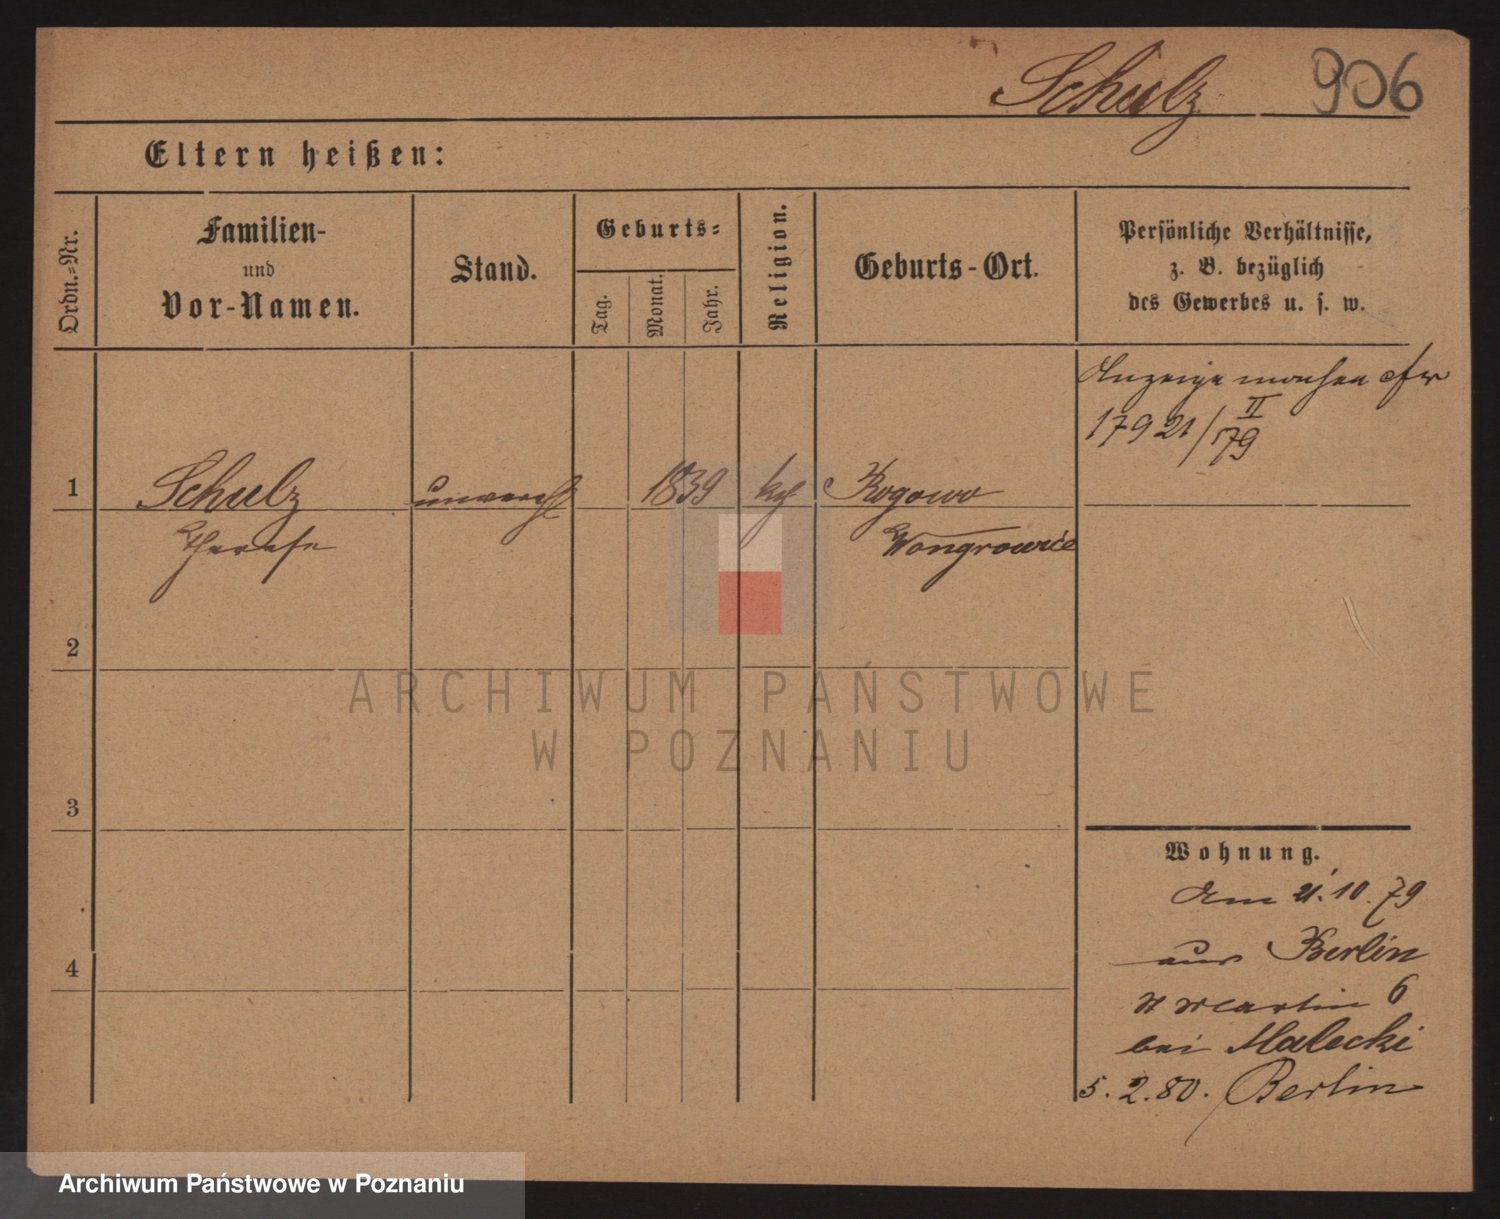 Schulz 906
Eltern heißen:
Ordn.=Nr.
Familien-
und
Vor-Namen.
Stand.
Geburts=
Tag.
Monat.
Jahr.
Religion.
Geburts-Ort.
Persönliche Verhältnisse,
z. B. bezüglich
des Gewerbes u. s. w.
Anzeige
1 Schulz unvereh 1839 kth Rogowo
Therese Wongrowiec
2
3
4
Wohnung.
Am 21.10.79
aus Berlin
St Martin 6
bei Malecki
5.2.80. Berlin
ARCHIWUM PAŃSTWOWE
W POZNANIU
Archiwum Państwowe w Poznaniu